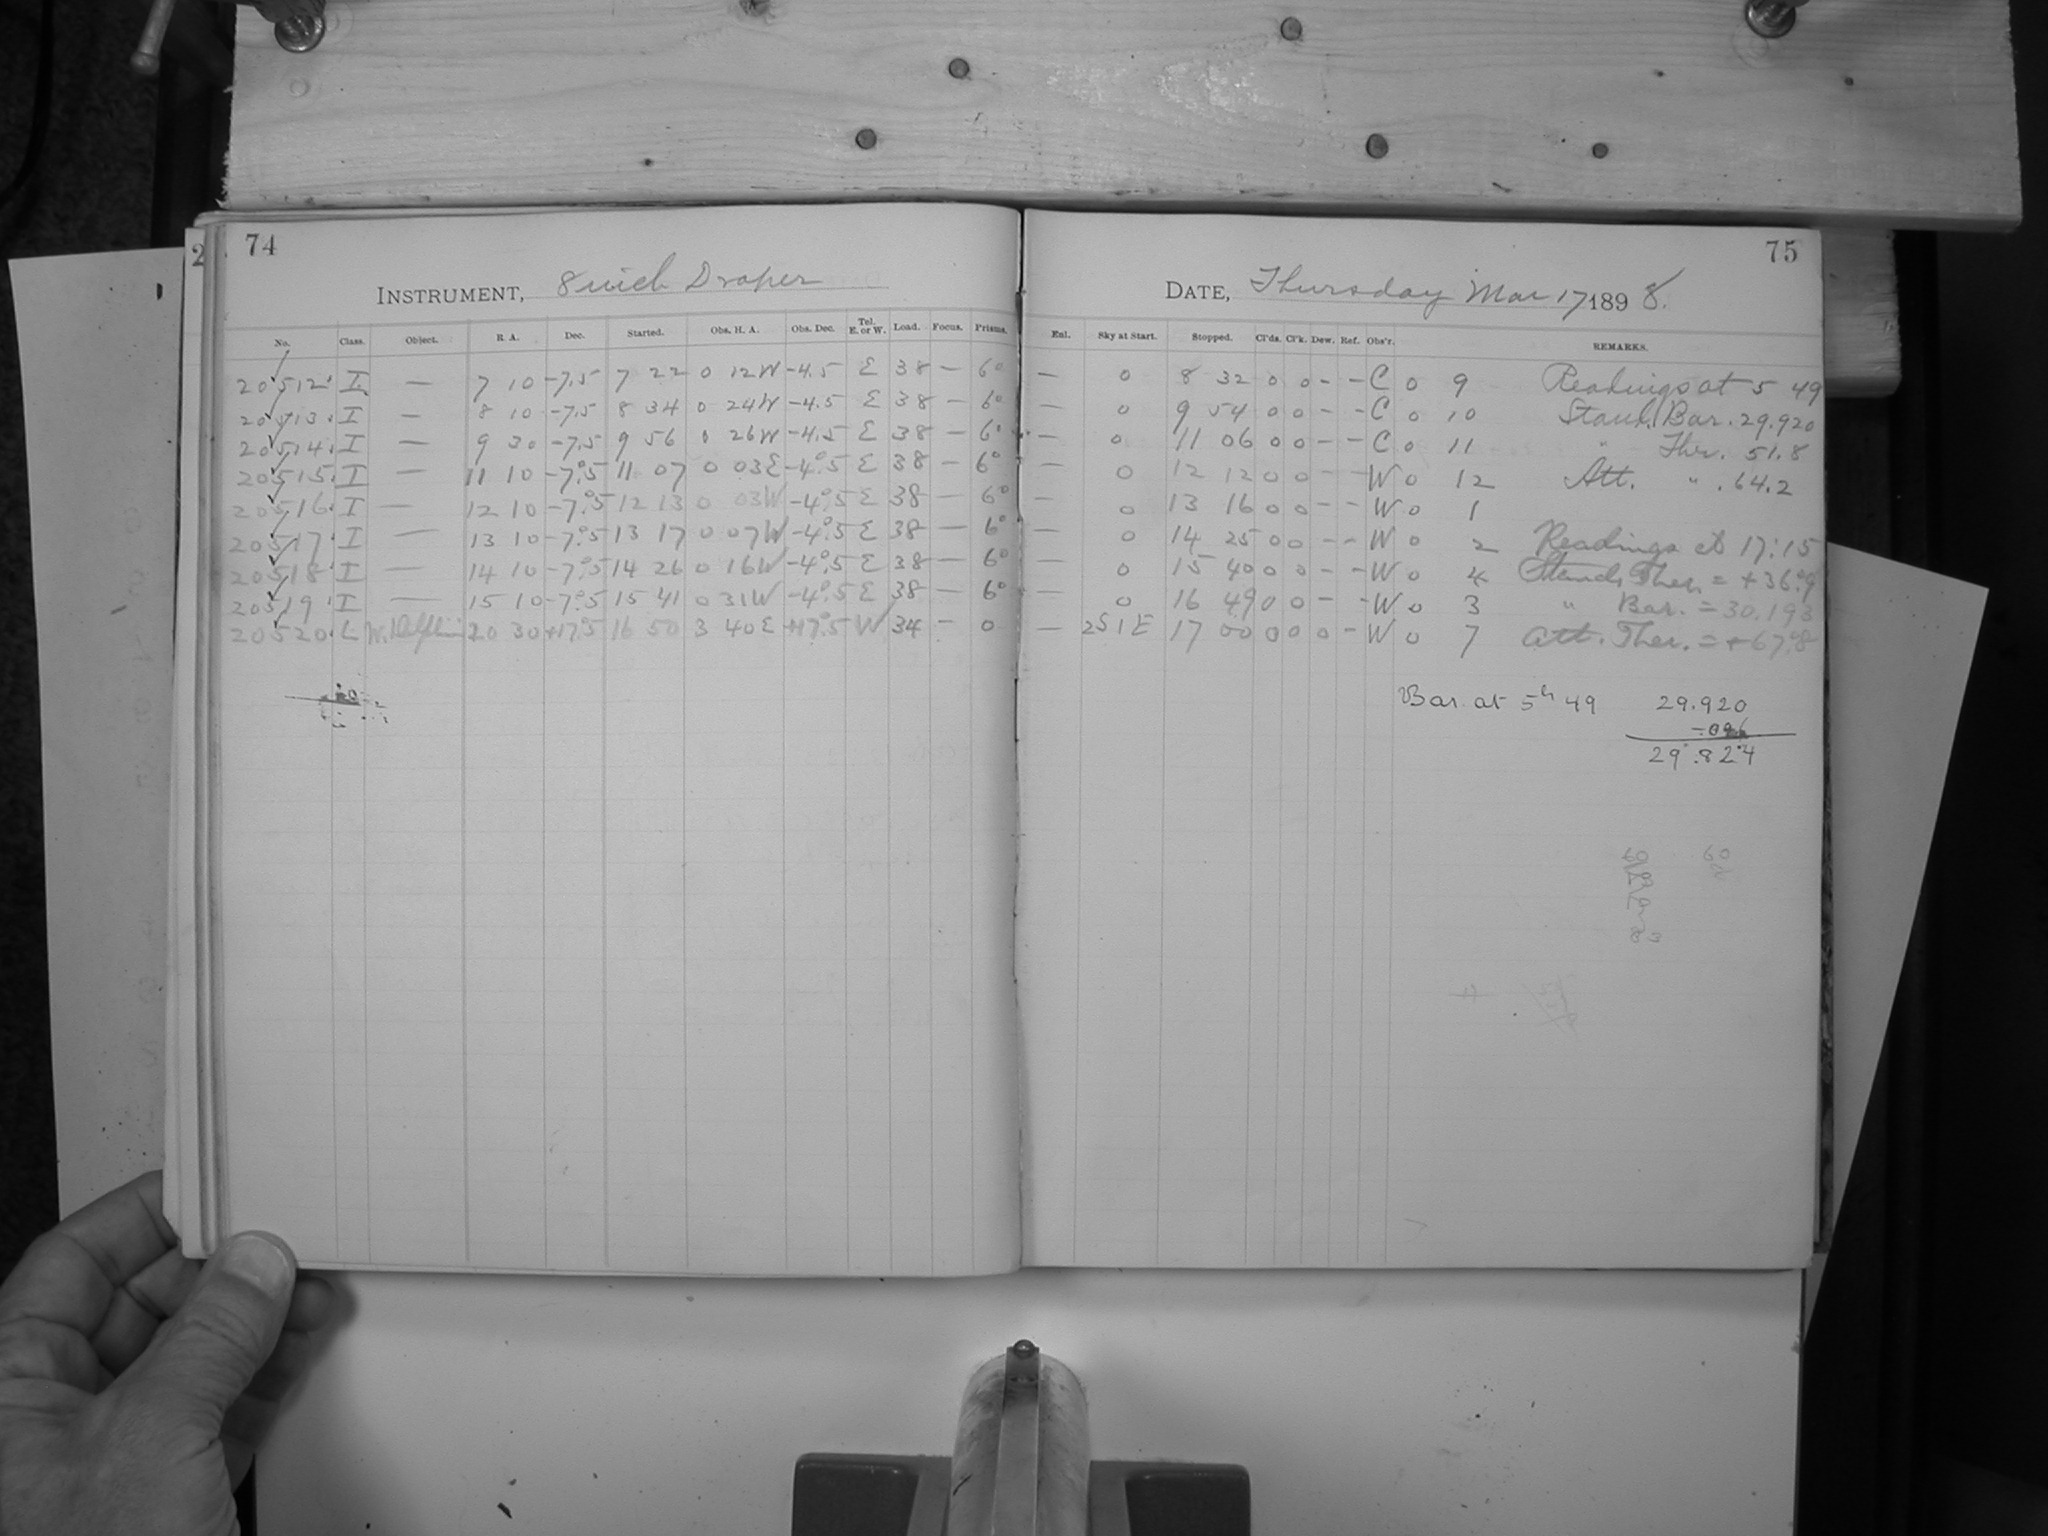 74
INSTRUMENT, 8 inch Draper
No. Class. Object. R. A. Dec. Started. Obs. H. A. Obs. Dec. Tel. E. or W. Load. Focus. Prisms.
20512 I — 7 10 -7.5 7 22 0 12W -4.5 E 38 — 6°
20513 I — 8 10 -7.5 8 34 0 24W -4.5 E 38 — 6°
20514 I — 9 30 -7.5 9 56 0 26W -4.5 E 38 — 6°
20515 I — 11 10 -7°.5 11 07 0 03E -4°.5 E 38 — 6°
20516 I — 12 10 -7°.5 12 13 0 03W -4°.5 E 38 — 6°
20517 I — 13 10 -7°.5 13 17 0 07W -4°.5 E 38 — 6°
20518 I — 14 10 -7°.5 14 26 0 16W -4°.5 E 38 — 6°
20519 I — 15 10 -7°.5 15 41 0 31W -4°.5 E 38 — 6°
20520 L W. Delphini 20 30 +17°.5 16 50 3 40E +17°.5 W 34 — 0
75
DATE, Thursday Mar 17 1898.
Enl. Sky at Start. Stopped. Cl'ds. Cl'k. Dew. Ref. Obs'r. REMARKS.
— 0 8 32 0 0 - - C 0 9 Readings at 5 49
— 0 9 54 0 0 - - C 0 10 Stand. Bar. 29.920
— 0 11 06 0 0 - - C 0 11 " Ther. 51.8
— 0 12 12 0 0 - - W 0 12 Att. " . 64.2
— 0 13 16 0 0 - - W 0 1
— 0 14 25 0 0 - - W 0 2 Readings at 17:15
— 0 15 40 0 0 - - W 0 4 Stand. Ther. = +36°.9
— 0 16 49 0 0 - - W 0 3 " Bar. = 30.193
— 2S1E 17 00 0 0 0 - W 0 7 Att. Ther. = +67°.8
Bar. at 5h 49 29.920
29.824